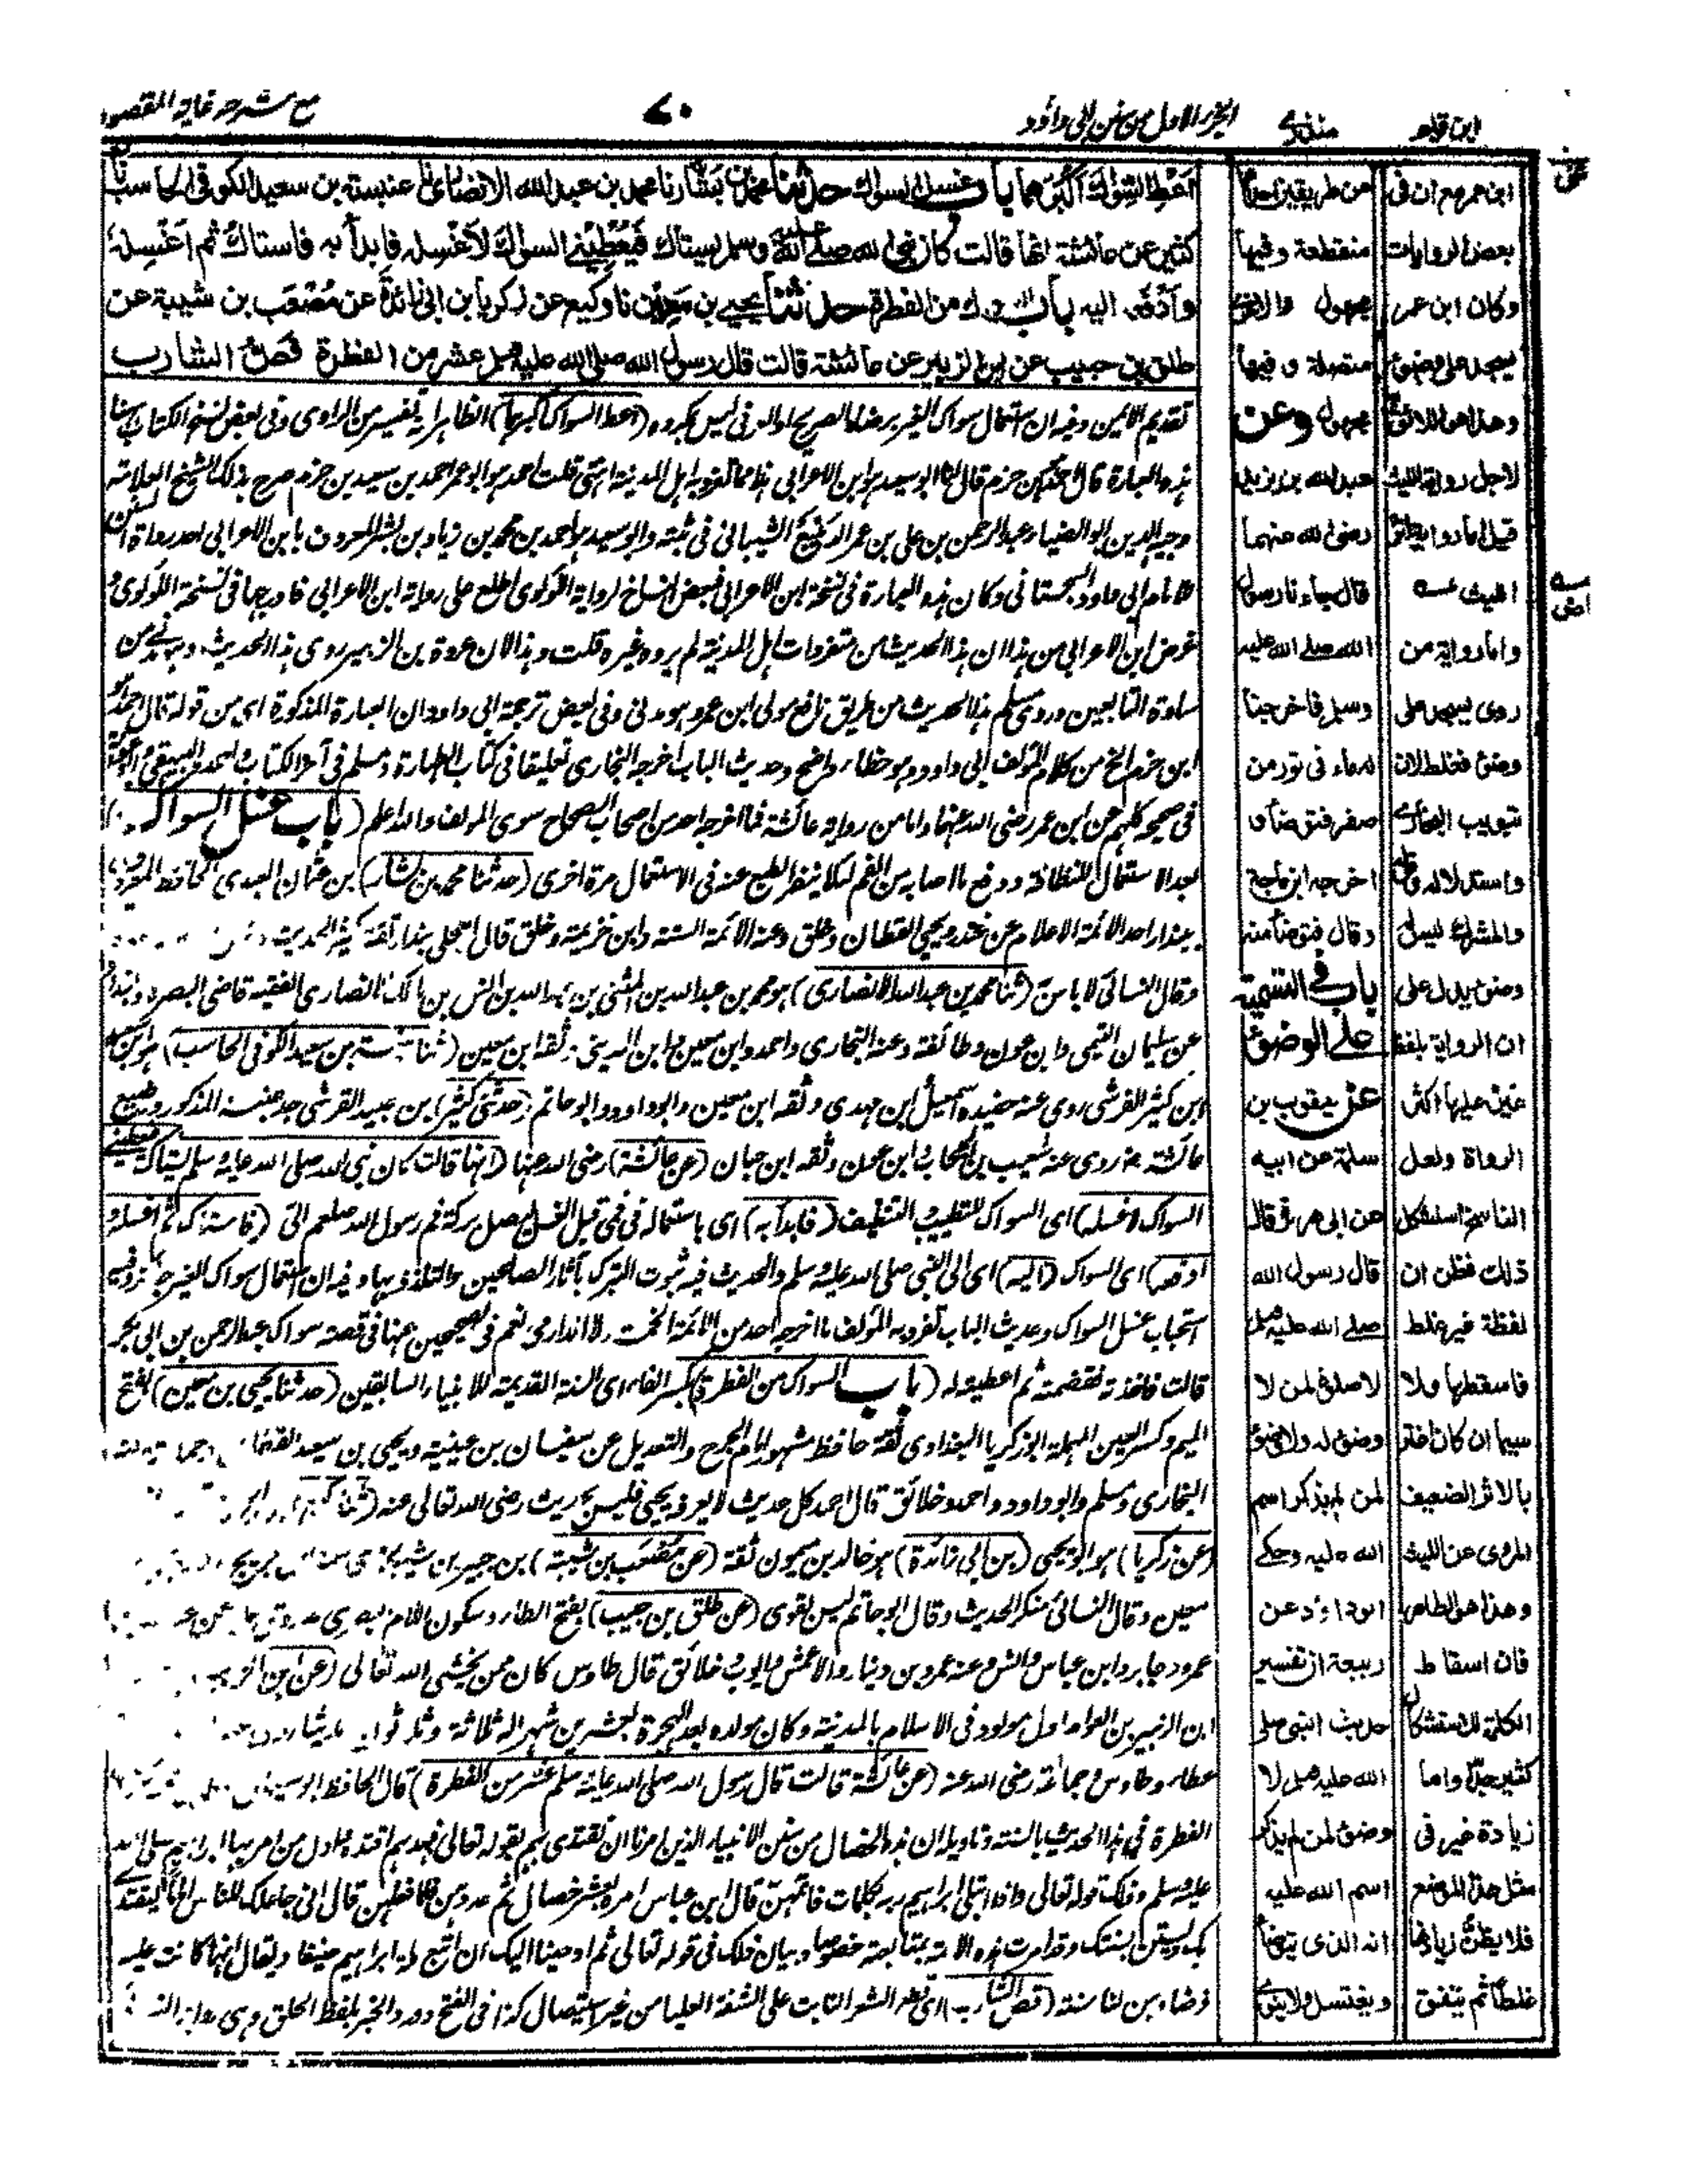 ابن قيم
منذري
الجزء الاول من سنن ابى داؤد
٧٠
مع شرحه غاية المقصود
اَعْطِ السِّوَاكَ اَكْبَرَهُمَا باب غسل السواك حدثنا محمد بن بشار نا محمد بن عبد الله الانصارى نا عنبسة بن سعيد الكوفى الحاسب نا
كثير عن عائشة انها قالت كان نبى الله صلى الله عليه وسلم يستاك فَيُعْطِيْنِى السواك لاَغْسِلَه فابدأ به فاستاك ثم اَغْسِلُه
وَاَدْفَعُه اليه باب السواك من الفطرة حدثنا يحيى بن معين نا وكيع عن زكريا بن ابى زائدة عن مُصْعَب بن شيبة عن
طلق بن حبيب عن ابن الزبير عن عائشة قالت قال رسول الله صلى الله عليه وسلم عشر من الفطرة قَصُّ الشارب
تقديم الايمن وفيه ان استعمال سواك الغير برضاه الصريح او العرفى ليس بمكروه (اعط السواك اكبرهما) الظاهر انه تفسير من الراوى وفى بعض نسخ الكتاب ههنا
هذه العبارة قال احمد بن حزم قال لنا ابو سعيد هو ابن الاعرابى هذا مما تفرد به اهل المدينة انتهى قلت احمد هو ابو عمر احمد بن سعيد بن حزم صرح بذلك الشيخ العلامة
وجيه الدين ابو الضياء عبد الرحمن بن على بن عمر الديبع الشيبانى فى ثبته وابو سعيد هو احمد بن محمد بن زياد بن بشر المعروف بابن الاعرابى احد رواة السنن
للامام ابى داود السجستانى وكان هذه العبارة فى نسخة ابن الاعرابى فبعض النساخ لرواية اللؤلوى اطلع على رواية ابن الاعرابى فادرجها فى نسخة اللؤلوى و
غرض ابن الاعرابى من هذا ان هذا الحديث من متفردات اهل المدينة لم يروه غيره قلت وهذا لان عروة بن الزبير روى هذا الحديث وهو مدنى من
سادة التابعين وروى مسلم هذا الحديث من طريق نافع مولى ابن عمر وهو مدنى وفى بعض ترجمة ابى داود ان العبارة المذكورة اى من قوله قال احمد هو
ابن حزم الخ من كلام المؤلف ابى داود وهو خطاء واضح وحديث الباب اخرجه البخارى تعليقا فى كتاب الطهارة ومسلم فى آخر الكتاب واحمد والبيهقى
فى صحيحه كلهم عن ابن عمر رضى الله عنهما واما من رواية عائشة فما اخرجه احد من اصحاب الصحاح سوى المؤلف والله اعلم (باب غسل السواك)
بعد الاستعمال للنظافة ودفع ما اصابه من الفم لئلا ينفر الطبع عنه فى الاستعمال مرة اخرى (حدثنا محمد بن بشار) بن عثمان العبدى الحافظ المعروف
ببندار احد الائمة الاعلام عن غندر ويحيى القطان وخلق وعنه الائمة الستة وابن خزيمة وخلق قال العجلى بندار ثقة كثير الحديث
وقال النسائى لا باس به (نا محمد بن عبد الله الانصارى) هو محمد بن عبد الله بن المثنى بن عبد الله بن انس بن مالك الانصارى الفقيه قاضى البصره
عن سليمان التيمى وابن عون وطائفة وعنه البخارى واحمد وابن معين وابن المدينى وثقه ابن معين (نا عنبسة بن سعيد الكوفى الحاسب) هو ابن سعيد
ابن كثير القرشى روى عنه حفيده اسمعيل ابن مهدى وثقه ابن معين وابو داود وابو حاتم (حدثنى كثير) بن عبيد القرشى جد عنبسة المذكور رضيع
عائشة وروى عنه شعيب بن الحبحاب وابن عون وثقه ابن حبان (عن عائشة) رضى الله عنها (انها قالت كان نبى الله صلى الله عليه وسلم يستاك فيعطينى
السواك لاغسله) اى السواك للتطييب والتنظيف (فابدأ به) اى باستعماله فى فمى قبل الغسل ليصل بركة فم رسول الله صلعم الىّ (فاستاك ثم اغسله و
ادفعه) اى السواك (اليه) اى الى النبى صلى الله عليه وسلم والحديث فيه ثبوت التبرك بآثار الصالحين والتلذذ بها وفيه ان استعمال سواك الغير جائز وفيه
استحباب غسل السواك وحديث الباب تفرد به المؤلف ما اخرجه احد من الائمة الخمسة ولا الدارمى نعم فى الصحيحين عنها فى قصة سواك عبد الرحمن بن ابى بكر
قالت فاخذته فقضمته ثم اعطيته له (باب السواك من الفطرة) بكسر الفاء اى السنة القديمة للانبياء السابقين (حدثنا يحيى بن معين) بفتح
الميم وكسر العين المهملة ابو زكريا البغدادى ثقة حافظ مشهور امام الجرح والتعديل عن سفيان بن عيينة ويحيى بن سعيد القطان
البخارى ومسلم وابو داود واحمد وخلائق قال احمد كل حديث لا يعرفه يحيى فليس بحديث رضى الله تعالى عنه
(عن زكريا) هو ابو يحيى (بن ابى زائدة) هو خالد بن ميمون ثقة (عن مصعب بن شيبة) بن جبير بن شيبة
معين وقال النسائى منكر الحديث وقال ابو حاتم ليس بقوى (عن طلق بن حبيب) بفتح الطاء وسكون اللام
عمرو وجابر وابن عباس وانس وعنه عمرو بن دينار والاعمش وايوب وخلائق قال طاوس كان ممن يخشى الله تعالى (عن ابن الزبير
ابن الزبير بن العوام اول مولود فى الاسلام بالمدينة وكان مولده بعد الهجرة بعشرين شهرا له ثلاثة وثلاثون حديثا
عطاء وطاوس وجماعة رضى الله عنه (عن عائشة قالت قال رسول الله صلى الله عليه وسلم عشر من الفطرة) قال الحافظ ابو سليمان
الفطرة فى هذا الحديث بالسنة وتاويله ان هذه الخصال من سنن الانبياء الذين امرنا ان نقتدى بهم بقوله تعالى فبهديهم اقتده واول من امر بها ابراهيم صلى الله
عليه وسلم وذلك قوله تعالى واذ ابتلى ابراهيم ربه بكلمات فاتمهن قال ابن عباس امره بعشر خصال ثم عددهن فلما فعلهن قال انى جاعلك للناس اماما ليقتدى
بك ويستن بسنتك وقد امرت هذه الامة بمتابعته خصوصا وبيان ذلك فى قوله تعالى ثم اوحينا اليك ان اتبع ملة ابراهيم حنيفا ويقال انها كانت عليه
فرضا وهن لنا سنة (قص الشارب) اى قطع الشعر النابت على الشفة العليا من غير استيصال كذا فى الفتح وورد الخبر بلفظ الحلق وهى رواية
من طريقين احدهما
منقطعة وفيها
مجهول والاخرى
متصلة وفيها
مجهول وعن
عبد الله بن زيد
رضى الله عنهما
قال جاءنا رسول
الله صلى الله عليه
وسلم فاخرجنا
له ماء فى تور من
صفر فتوضأ
اخرجه ابن ماجة
وقال فتوضأ منه
باب فى التسمية
على الوضوء
عن يعقوب بن
سلمة عن ابيه
عن ابى هريرة قال
قال رسول الله
صلى الله عليه وسلم
لا صلوة لمن لا
وضوء له ولا وضوء
لمن لم يذكر اسم
الله عليه وحكى
ابو داؤد عن
ربيعة ان تفسير
حديث النبى صلى
الله عليه وسلم لا
وضوء لمن لم يذكر
اسم الله عليه
انه الذى يتوضأ
ويغتسل ولا ينوى
ابن عمر مع ان فى
بعض الروايات
وكان ابن عمر
يسجد على وضوء
وهذا هو اللائق
لاجل رواية الليث
قيل اما رواية
الليث
واما رواية من
روى يسجد على
وضوء فغلط لان
تبويب البخارى
واستدلاله وقوله
والمشرك ليس له
وضوء يدل على
ان الرواية بلفظ
غير عليها اكثر
الرواة ولعل
الناسخ استشكل
ذلك فظن ان
لفظة غير غلط
فاسقطها ولا
سيما ان كان اغتر
بالاثر الضعيف
المروى عن الليث
وهذا هو الظاهر
فان اسقاط
الكلمة للاستشكال
كثير جدا واما
زيادة غير فى
مثل هذا الموضع
فلا يظن زيادتها
غلطا ثم يتفق